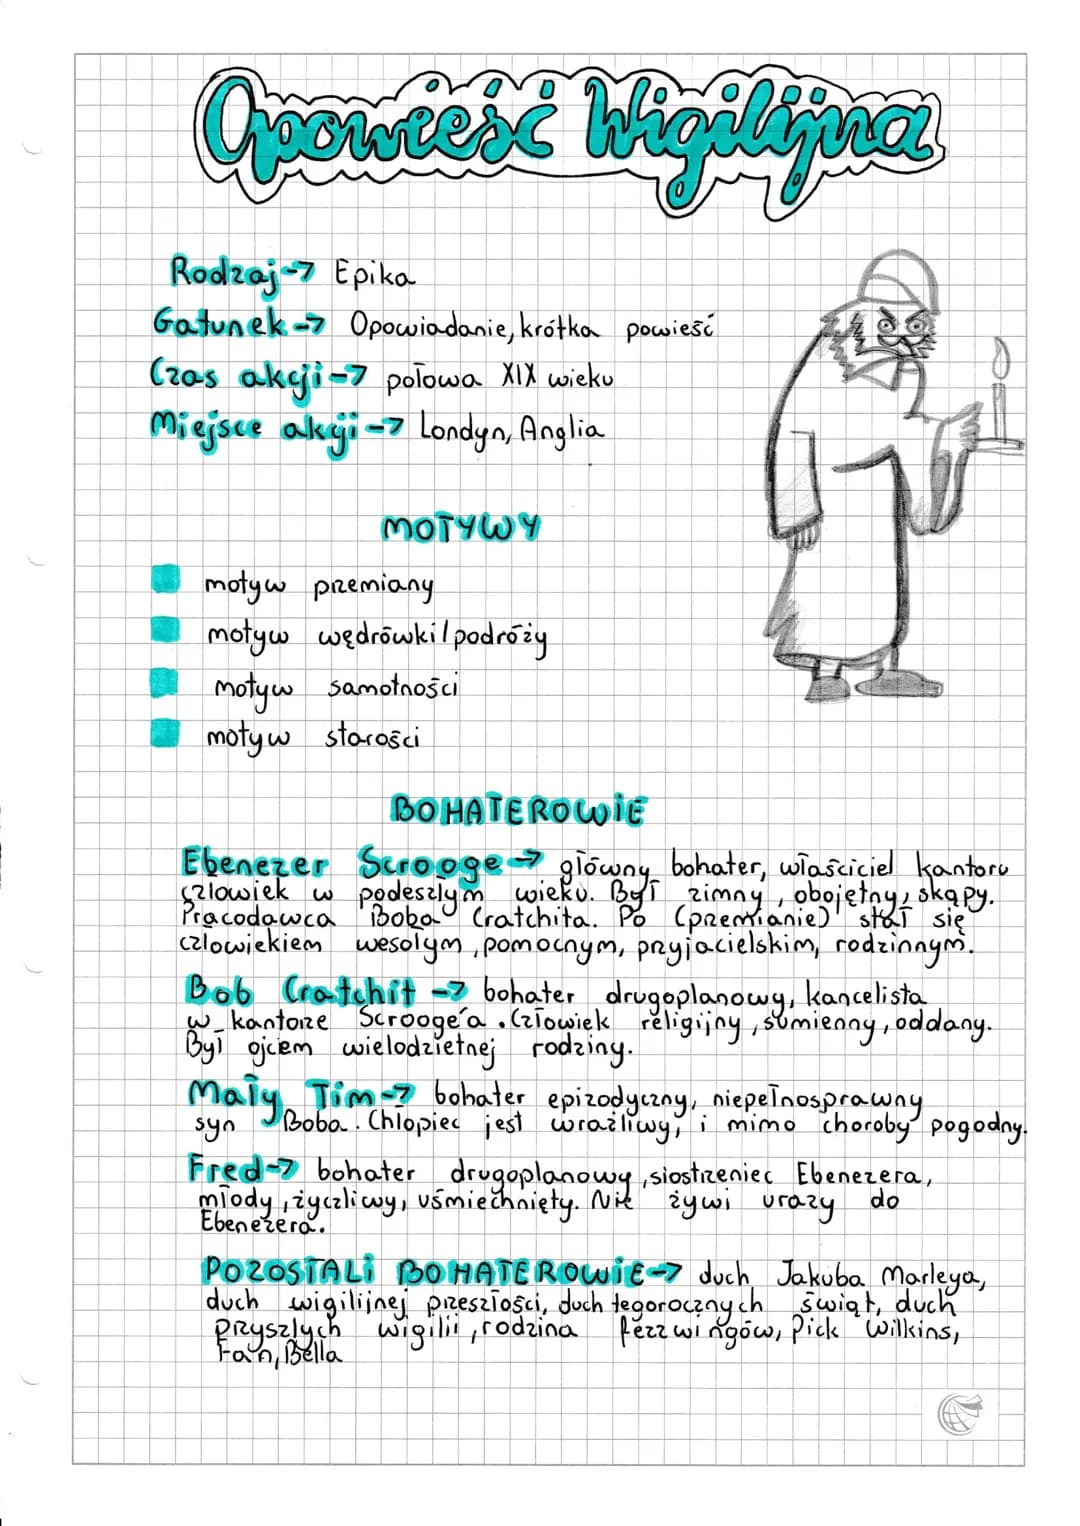 Opowieść Wigilijna
Rodzaj -> Epika
Gatunek -> Opowiadanie, krótka powieść
Czas akcji -> połowa XIX wieku
Miejsce akcji -> Londyn, Anglia
MOTYWY
motyw przemiany
motyw wędrówki/podróży
motyw samotności
motyw starości
BOHATEROWIE
Ebenezer Scrooge -> główny bohater, właściciel kantoru
człowiek w podeszłym wieku. Był zimny, obojętny, skąpy.
Pracodawca Boba Cratchita. Po (przemianie) stał się
człowiekiem wesołym, pomocnym, przyjacielskim, rodzinnym.
Bob Cratchit -> bohater drugoplanowy, kancelista
w kantorze Scrooge'a. Człowiek religijny, sumienny, oddany.
Był ojcem wielodzietnej rodziny.
Mały Tim -> bohater epizodyczny, niepełnosprawny
syn Boba. Chłopiec jest wrażliwy, i mimo choroby pogodny.
Fred -> bohater drugoplanowy, siostrzeniec Ebenezera,
młody, życzliwy, uśmiechnięty. Nie żywi urazy do
Ebenezera.
POZOSTALI BOHATEROWIE -> duch Jakuba Marleya,
duch wigilijnej przeszłości, duch tegorocznych świąt, duch
przyszłych wigilii, rodzina Fezzwingów, Pick Wilkins,
Fan, Bella